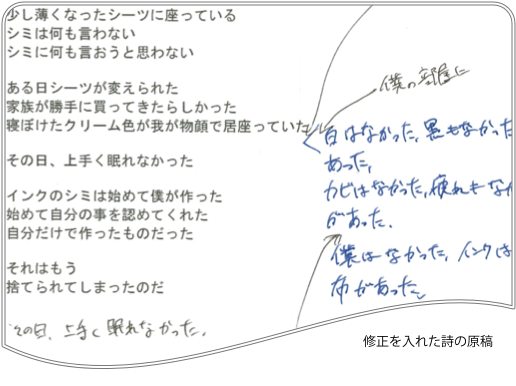 少し薄くなったシーツに座っている
シミは何も言わない
シミに何も言おうと思わない
ある日シーツが変えられた
家族が勝手に買ってきたらしかった
寝ぼけたクリーム色が我が物顔で居座っていた
その日、上手く眠れなかった
インクのシミは始めて僕が作った
始めて自分の事を認めてくれた
自分だけで作ったものだった
それはもう
捨てられてしまったのだ
その日、上手く眠れなかった。
僕の部屋に
白はなかった、黒もなかった
あった、
カビはなかった、疲れもな
があった、
僕はなかった、インクは
布があった。
修正を入れた詩の原稿